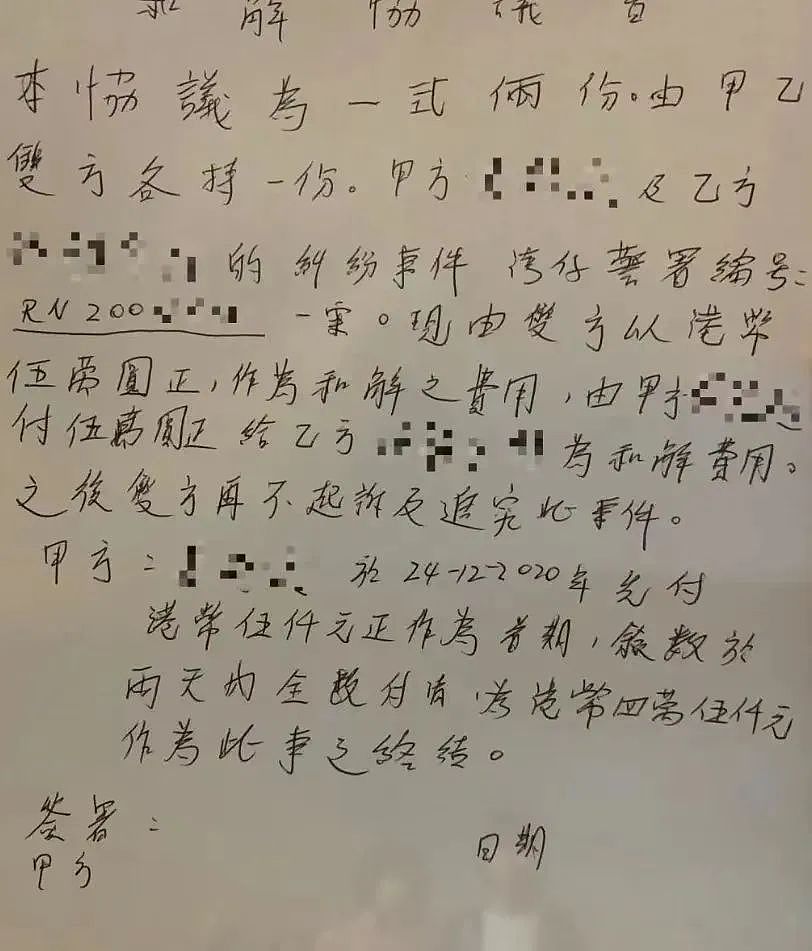 和解協議書
本協議為一式倆份。由甲乙
雙方各持一份。甲方 及乙方
的糾紛事件 湾仔警署編号：
RN 200 一案。現由雙方以港幣
伍萬圓正，作為和解之費用，由甲方
付伍萬圓正給乙方 為和解費用。
之後雙方再不起訴及追究此事件。
甲方： 於 24-12-2020年先付
港幣伍仟元正作為首期，餘數於
兩天內全數付清，為港幣四萬伍仟元
作為此事之終结。
签署：
甲方
日期